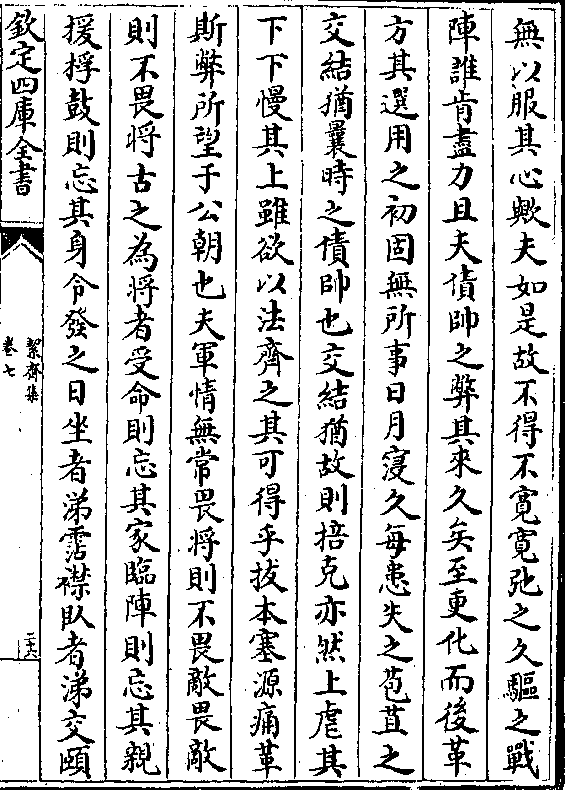 無以服其心歟夫如是故不得不寛寛弛之久驅之戰
陣誰肯盡力且夫債帥之弊其來久矣至更化而後革
方其選用之初固無所事日月寖久每患失之苞苴之
交結猶曩時之債帥也交結猶故則掊克亦然上虐其
下下慢其上雖欲以法齊之其可得乎拔本塞源痛革
斯弊所望于公朝也夫軍情無常畏將則不畏敵畏敵
則不畏將古之為將者受命則忘其家臨陣則忘其親
援桴鼓則忘其身令發之日坐者涕霑襟臥者涕交頤
欽定四庫全書
絜齊集
卷七
二十六